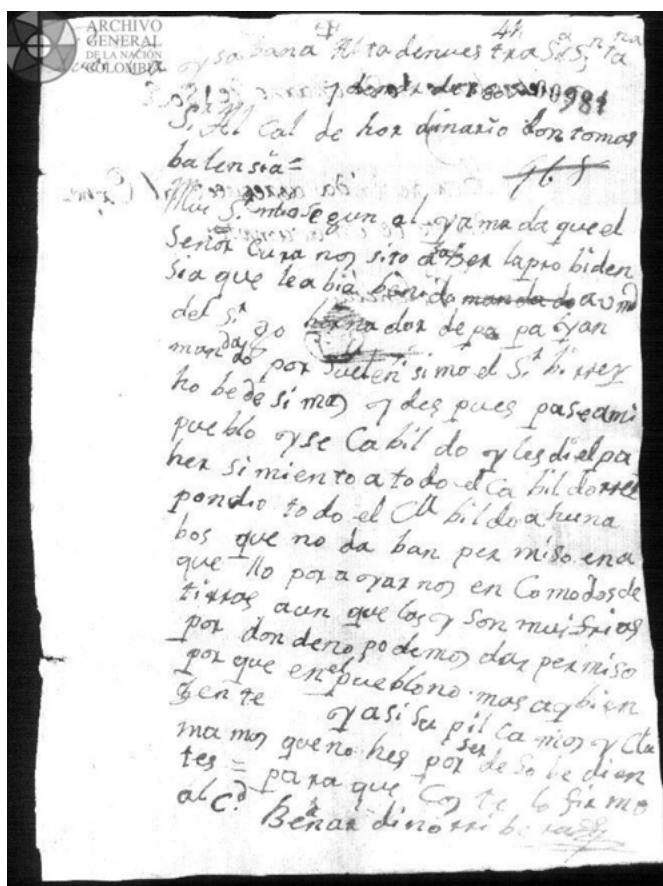 ARCHIVO
GENERAL
DE LA NACIÓN
COLOMBIA
oy sabana Alta denues tra Sª
984
S. Al Cal de hor dinario don tomas
balensia =
Mui Sr mio segun al oyamada que el
Señor Cura nos siso saber lapro biden
sia que lea bia benido mandado a vmd
del Sr go bernador de pa pa oyan
mandado por suelen si simo el Sr birrey
ho bede si mos y des pues pase ami
pueblo oyse Cabil do oy les di el pa
her simiento a todo el Ca bil do rres
pondio todo el Ca bildo a huna
bos que no da ban per miso ena
que llo por a oyar nos en Comodos de
tirras aun que las oy son mui frias
por don deno podemos dar permiso
por que en el pueblo no mas aqy bien
gente oy asi su pil ca mos oy Cla
ma mos que no hes por ser de so be dien
tes = para que Cos te lo firmo
al Cd
Bernar dino rri be ra